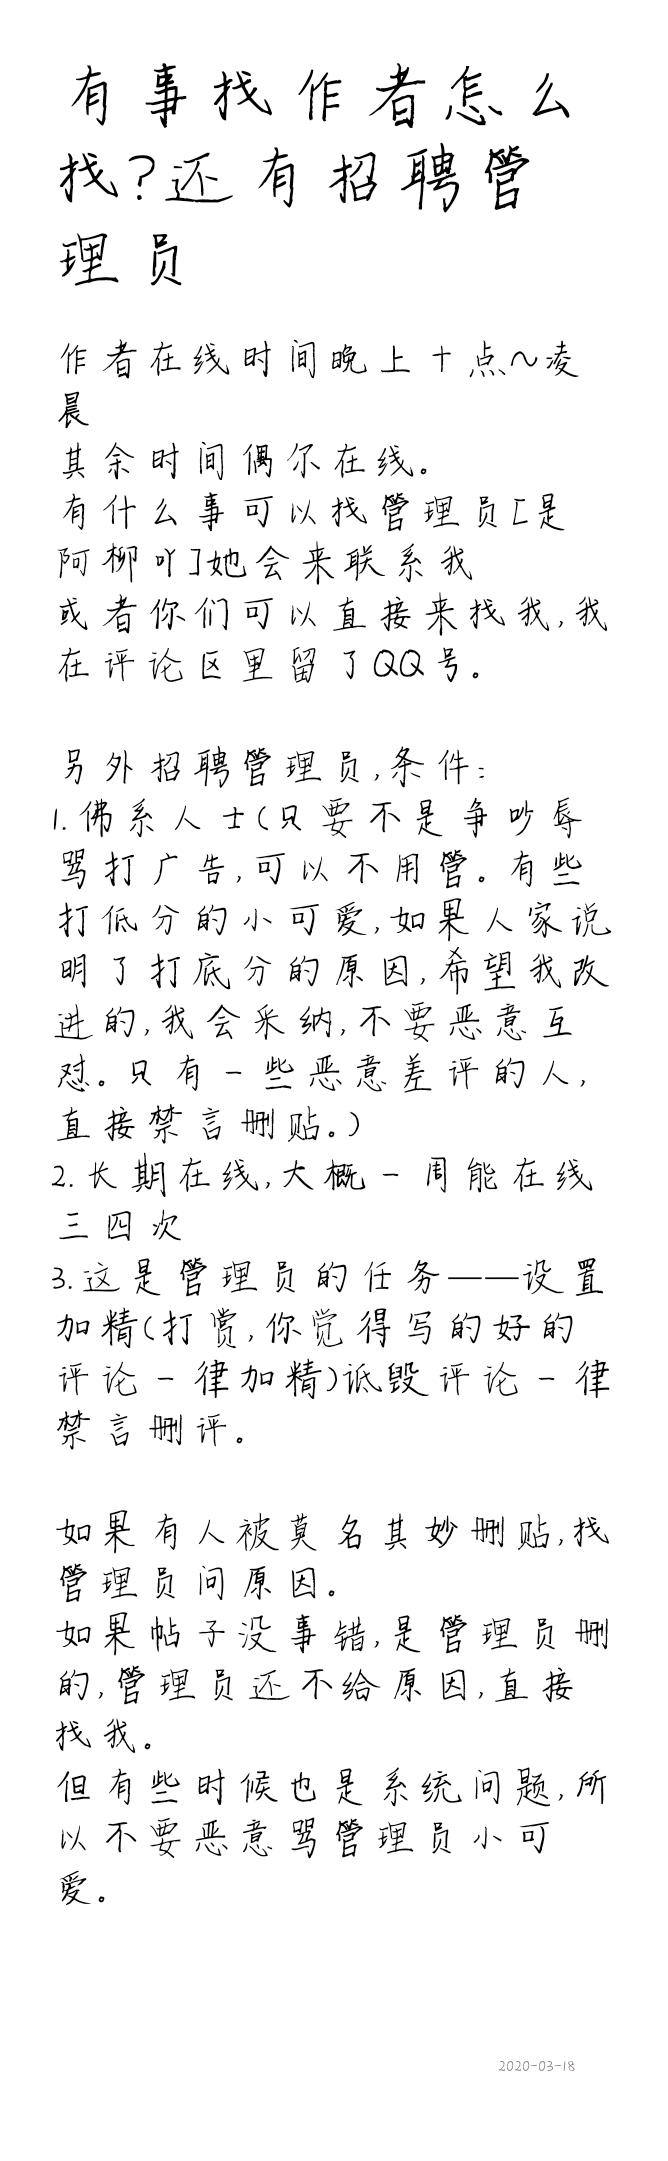 有事找作者怎么
找?还有招聘管
理员
作者在线时间晚上十点~凌
晨
其余时间偶尔在线。
有什么事可以找管理员[是
阿柳吖]她会来联系我
或者你们可以直接来找我,我
在评论区里留了QQ号。
另外招聘管理员,条件:
1.佛系人士(只要不是争吵辱
骂打广告,可以不用管。有些
打低分的小可爱,如果人家说
明了打底分的原因,希望我改
进的,我会采纳,不要恶意互
怼。只有一些恶意差评的人,
直接禁言删贴。)
2.长期在线,大概一周能在线
三四次
3.这是管理员的任务——设置
加精(打赏,你觉得写的好的
评论一律加精)诋毁评论一律
禁言删评。
如果有人被莫名其妙删贴,找
管理员问原因。
如果帖子没事错,是管理员删
的,管理员还不给原因,直接
找我。
但有些时候也是系统问题,所
以不要恶意骂管理员小可
爱。
2020-03-18